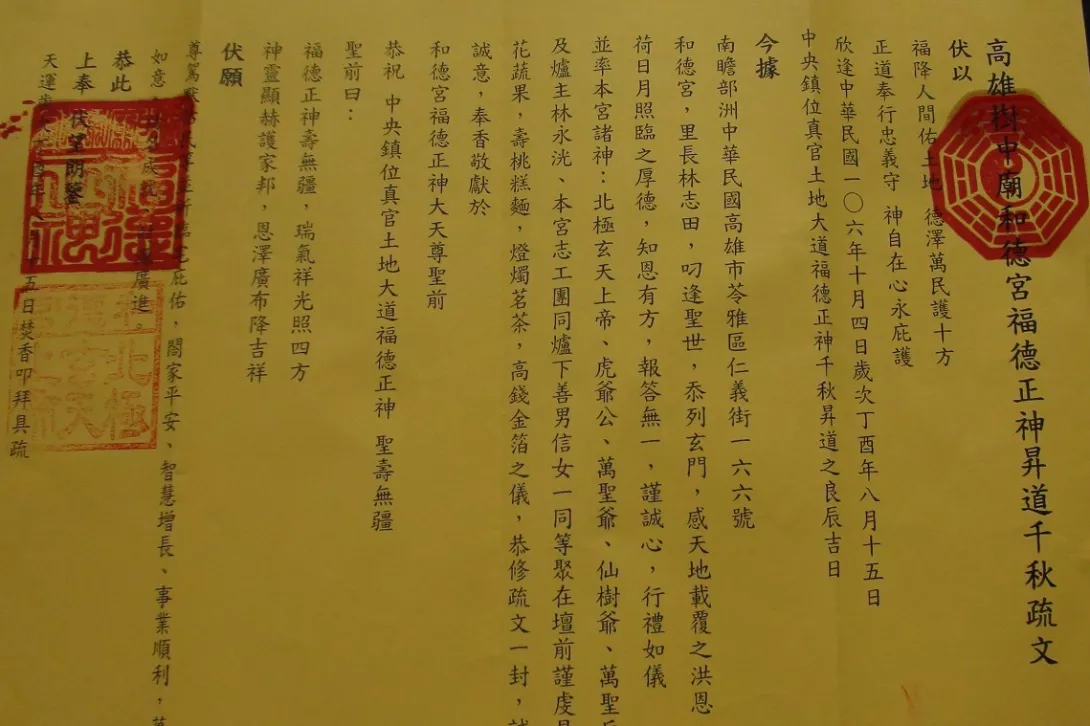 高雄樹中廟和德宮福德正神昇道千秋疏文
伏以
福降人間佑土地 德澤萬民護十方
正道奉行忠義守 神自在心永庇護
欣逢中華民國一〇六年十月四日歲次丁酉年八月十五日
中央鎮位真官土地大道福德正神千秋昇道之良辰吉日
今據
南瞻部洲中華民國高雄市苓雅區仁義街一六六號
和德宮，里長林志田，叨逢聖世，忝列玄門，感天地載覆之洪恩
荷日月照臨之厚德，知恩有方，報答無一，謹誠心，行禮如儀
並率本宮諸神：北極玄天上帝、虎爺公、萬聖爺、仙樹爺、萬聖
及爐主林永洸、本宮志工團同爐下善男信女一同等聚在壇前謹虔
花蔬果，壽桃糕麵，燈燭茗茶，高錢金箔之儀，恭修疏文一封，
誠意，奉香敬獻於
和德宮福德正神大天尊聖前
恭祝 中央鎮位真官土地大道福德正神 聖壽無疆
聖前曰：
福德正神壽無疆，瑞氣祥光照四方
神靈顯赫護家邦，恩澤廣布降吉祥
伏願
尊駕 庇佑，閤家平安、智慧增長、事業順利，
如意 廣進。
恭此
上奉 伏望朗鑒
天運歲次 五日焚香叩拜具疏
北極